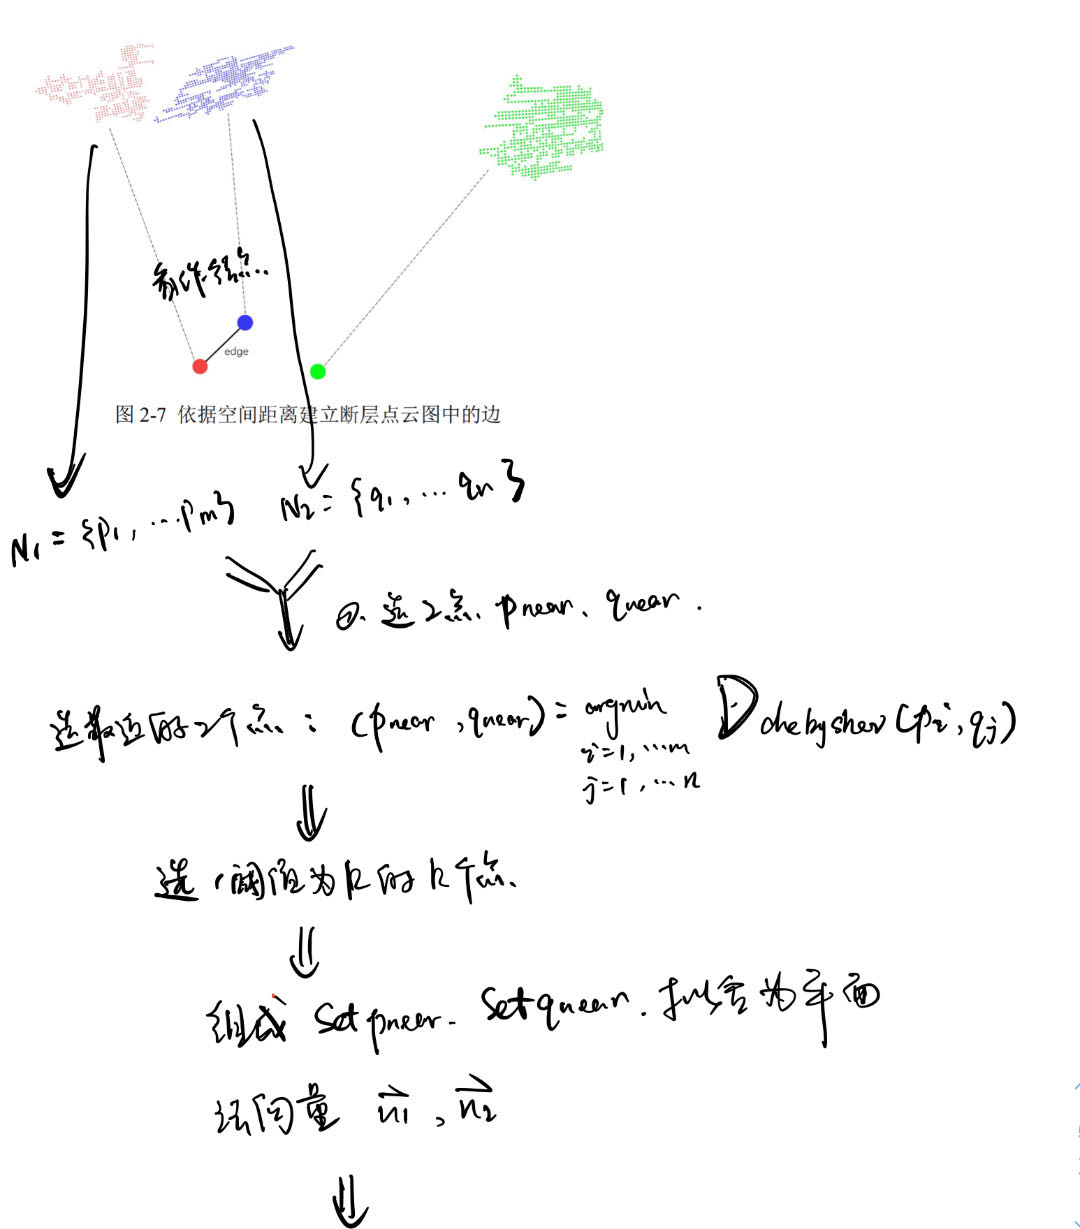 看作结点.
edge
图 2-7 依据空间距离建立断层点云图中的边
N₁ = {p₁, ...pₘ} N₂ = {q₁, ... qₙ}
②. 选2点. pnear、qnear.
选最近的2个点: (pnear, qnear) = argmin Dchebyshev(pi, qj)
i=1, ...m
j=1, ...n
选 1阈值为k的k个点.
组成 Set pnear. Set qnear. 拟合为平面
法向量 n₁⃗, n₂⃗